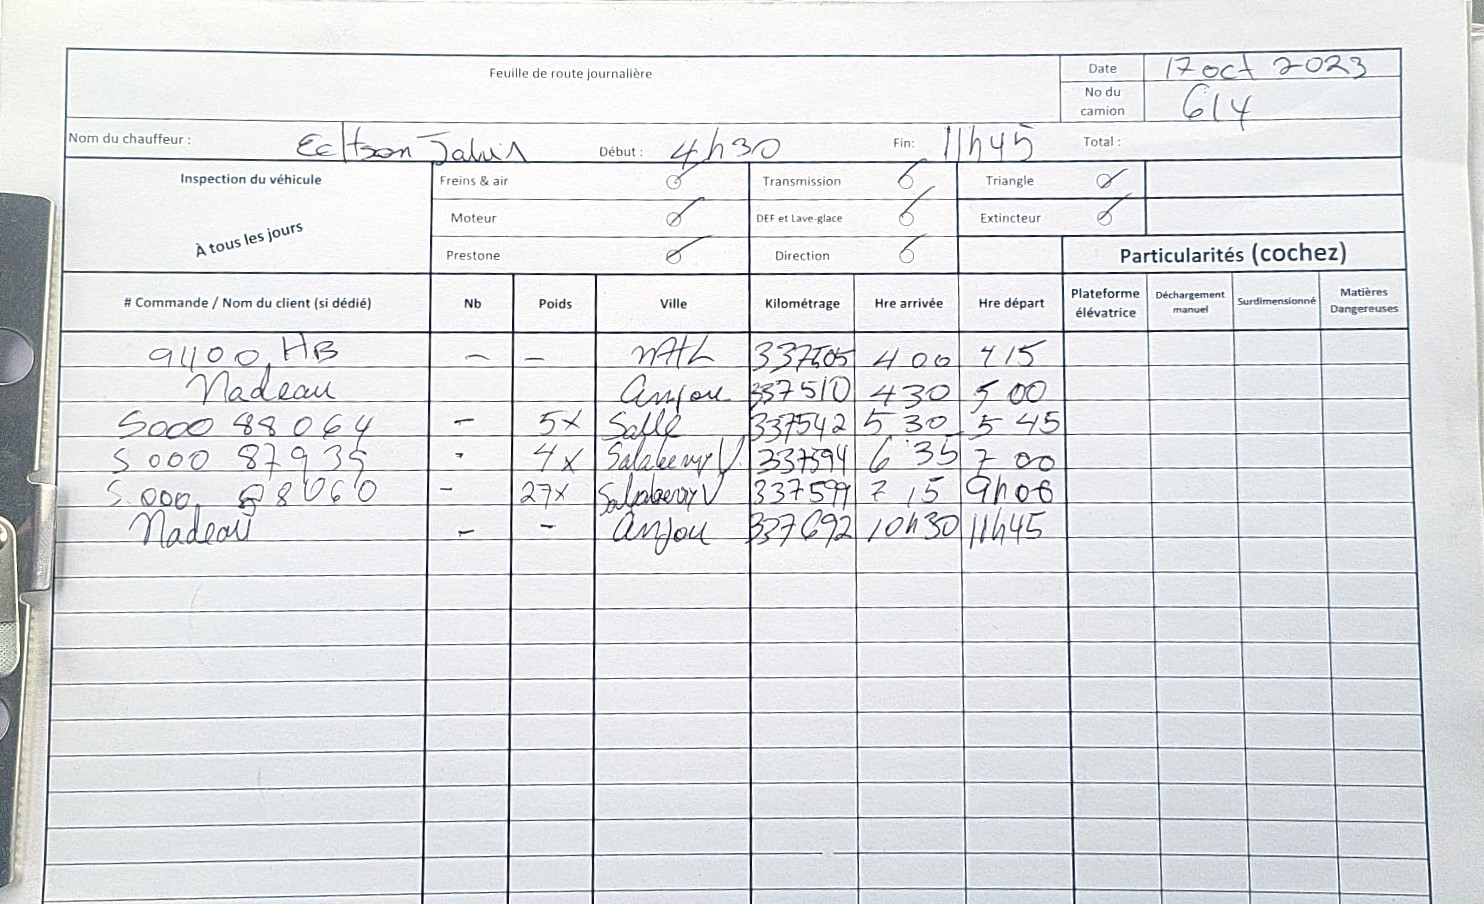 Feuille de route journalière
Date 17 oct 2023
No du camion 614
Nom du chauffeur : Début : 4h30 Fin: 11h45 Total :
Inspection du véhicule Freins & air Transmission Triangle
À tous les jours Moteur DEF et Lave-glace Extincteur
Prestone Direction Particularités (cochez)
# Commande / Nom du client (si dédié) Nb Poids Ville Kilométrage Hre arrivée Hre départ Plateforme élévatrice Déchargement manuel Surdimensionné Matières Dangereuses
9100 HB - - 337505 4 00 4 15
Nadeau Anjou 337510 4 30 5 00
5000 88064 - 5x Salle 337542 5 30 5 45
5 000 87935 - 4x Salaberry V. 337594 6 35 7 00
5.000 88060 - 27x Salaberry V 337599 7 15 9h00
Nadeau - - Anjou 337692 10h30 11h45